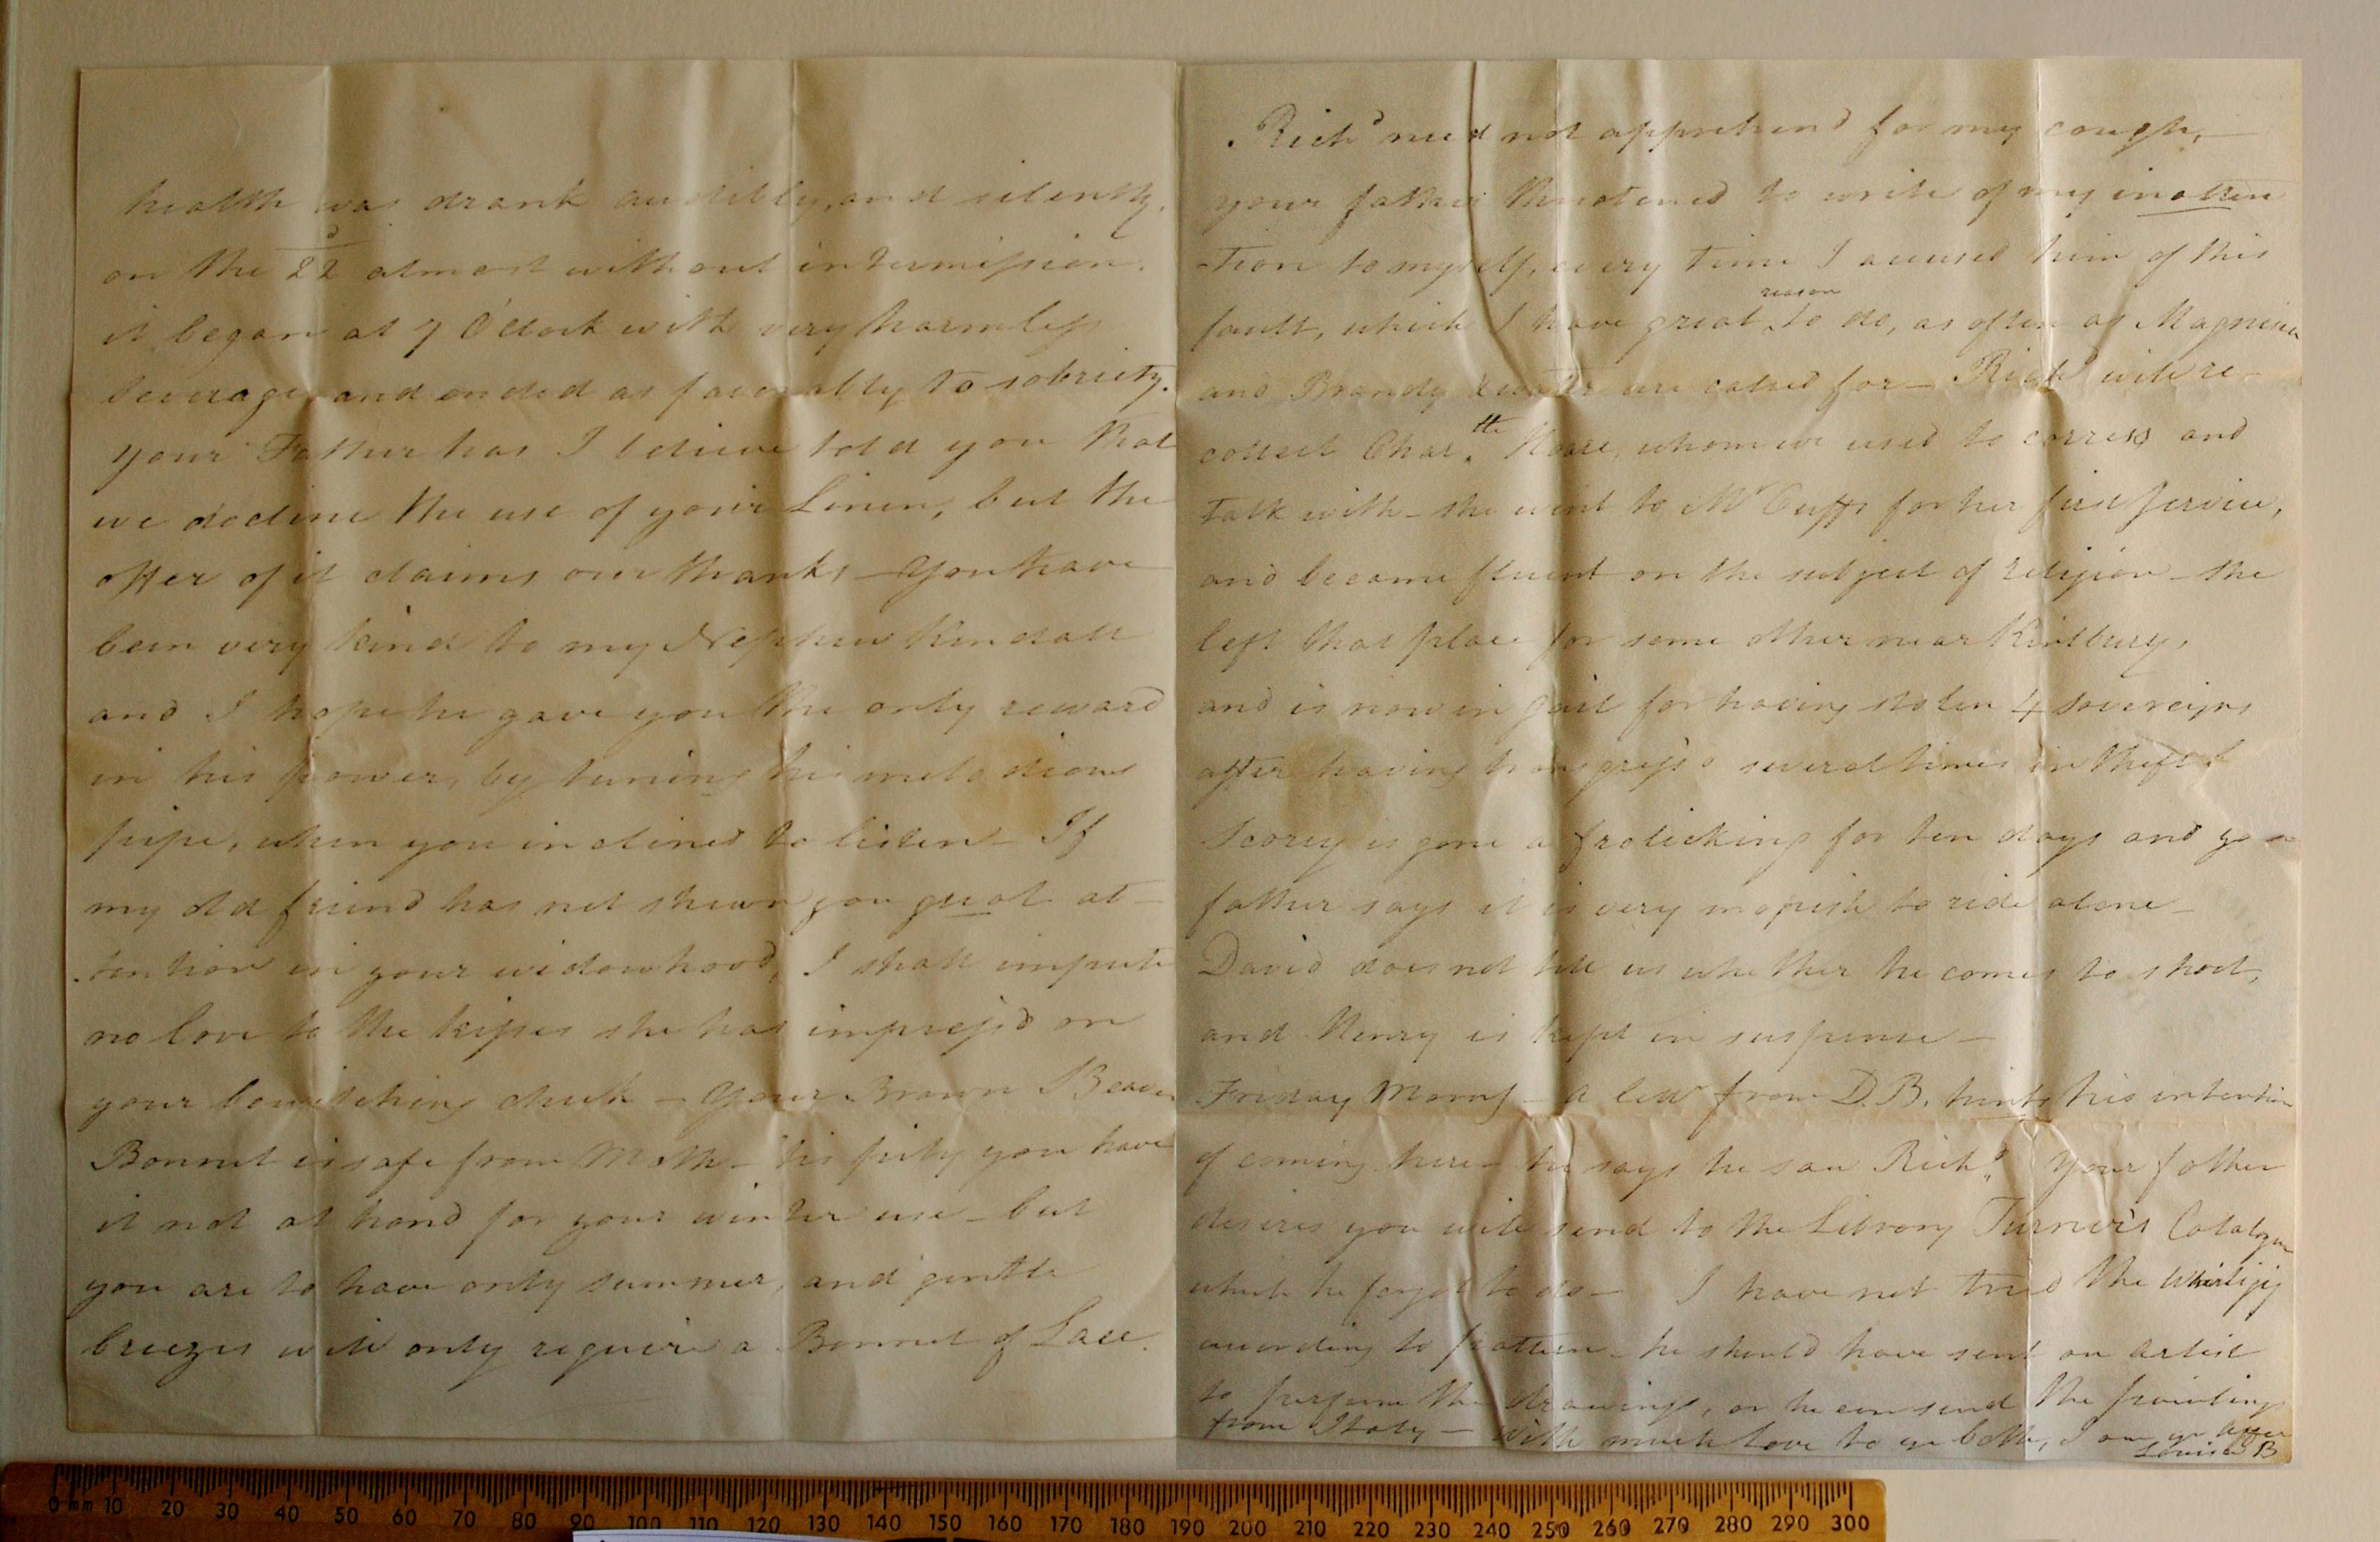 health was drank audibly, and silently,
on the 22d almost without intermission.
it began at 7 O'Clock with very harmless
beverage and ended as favorably to sobriety.
your Father has I believe told you that
we decline the use of your Linen, but the
offer of it claims our thanks - You have
been very kind to my Nephew Kendall
and I hope he gave you the only reward
in his power, by tuning his melodious
pipe, when you inclined to listen - If
my old friend has not shewn you great at-
-tention in your widowhood, I shall impute
no love to the kisses she has impress'd on
your bewitching cheek - Your Brown Beaver
Bonnet is safe from Moth - 'tis pity you have
it not at hand for your winter use - but
you are to have only summer, and gentle
breezes will only require a Bonnet of Lace.
Richd need not apprehend for my cough, -
your father threatened to write of my inatten
-tion to myself, every time I accused him of this
fault, which I have great reason to do, as often as Magnesia
and Brandy & water are called for - Richd will re-
collect Char.tte Hoare, whom we used to carress and
talk with - she went to Mr Cuffs for her first service,
and became fluent on the subject of religion - she
left that place for some other near Kintbury,
and is now in gail for having stolen 4 sovereigns
after having transgress'd several times in theft
Scorey is gone a frolicking for ten days and yr
father says it is very mopish to ride alone -
David does not tell us whether he comes to shoot,
and Henry is kept in suspense -
Friday Morng - a lettr from D.B. hints his intention
of coming here - he says he saw Richd. Your father
desires you will send to the Library Turner's Catalogue
which he forgot to do - I have not tried the Whirligig
according to pattern - he should have sent an artist
to perform the drawings, or he can send the paintings
from Italy - With much love to yr both, I am yr affec
Louisa B